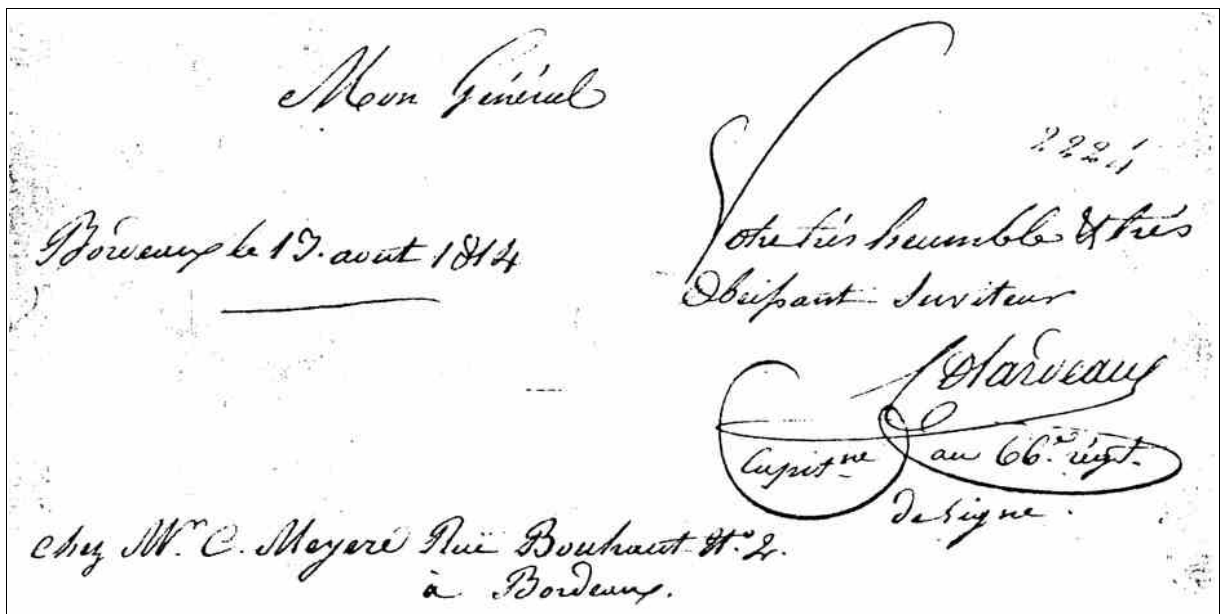 Mon Général
2224
Bordeaux le 17. aout 1814
Votre très heumble & très
Obeissant Serviteur
Capit.ne au 66.e régt.
de ligne.
chez Mr. C. Meyere Rue Bouhaut No. 2.
à Bordeaux.